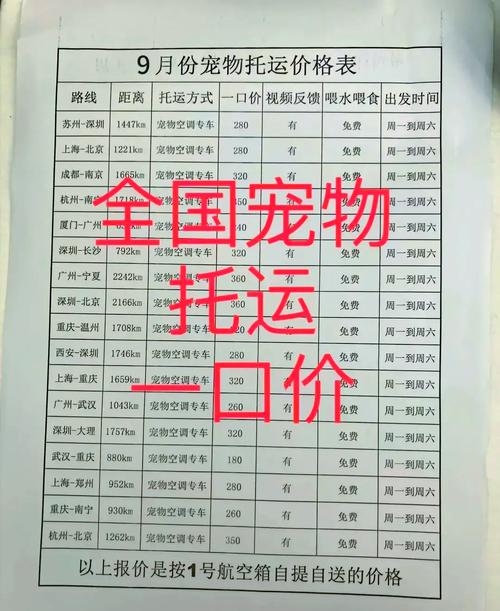 9月份宠物托运价格表
路线 距离 托运方式 一口价 视频反馈 喂水喂食 出发时间
苏州-深圳 1447km 宠物空调专车 280 有 免费 周一到周六
上海-北京 1221km 宠物空调专车 280 有 免费 周一到周六
成都-南京 1665km 宠物空调专车 320 有 免费 周一到周六
杭州-南宁 1718km 宠物空调专车 350 有 免费 周一到周六
厦门-广州 宠物空调专车 240 有 免费 周一到周六
深圳-长沙 792km 宠物空调专车 有 免费 周一到周六
广州-宁夏 2242km 宠物空调专车 360 有 免费 周一到周六
深圳-北京 2166km 宠物空调专车 360 有 免费 周一到周六
重庆-温州 1708km 宠物空调专车 320 有 免费 周一到周六
西安-深圳 1746km 宠物空调专车 280 有 免费 周一到周六
上海-重庆 1659km 宠物空调专车 320 有 免费 周一到周六
广州-武汉 1043km 宠物空调专车 260 有 免费 周一到周六
深圳-大理 1757km 宠物空调专车 320 有 免费 周一到周六
武汉-重庆 880km 宠物空调专车 180 有 免费 周一到周六
上海-郑州 952km 宠物空调专车 280 有 免费 周一到周六
重庆-南宁 930km 宠物空调专车 260 有 免费 周一到周六
杭州-北京 1262km 宠物空调专车 350 有 免费 周一到周六
以上报价是按1号航空箱自提自送的价格
全国宠物
托运
一口价